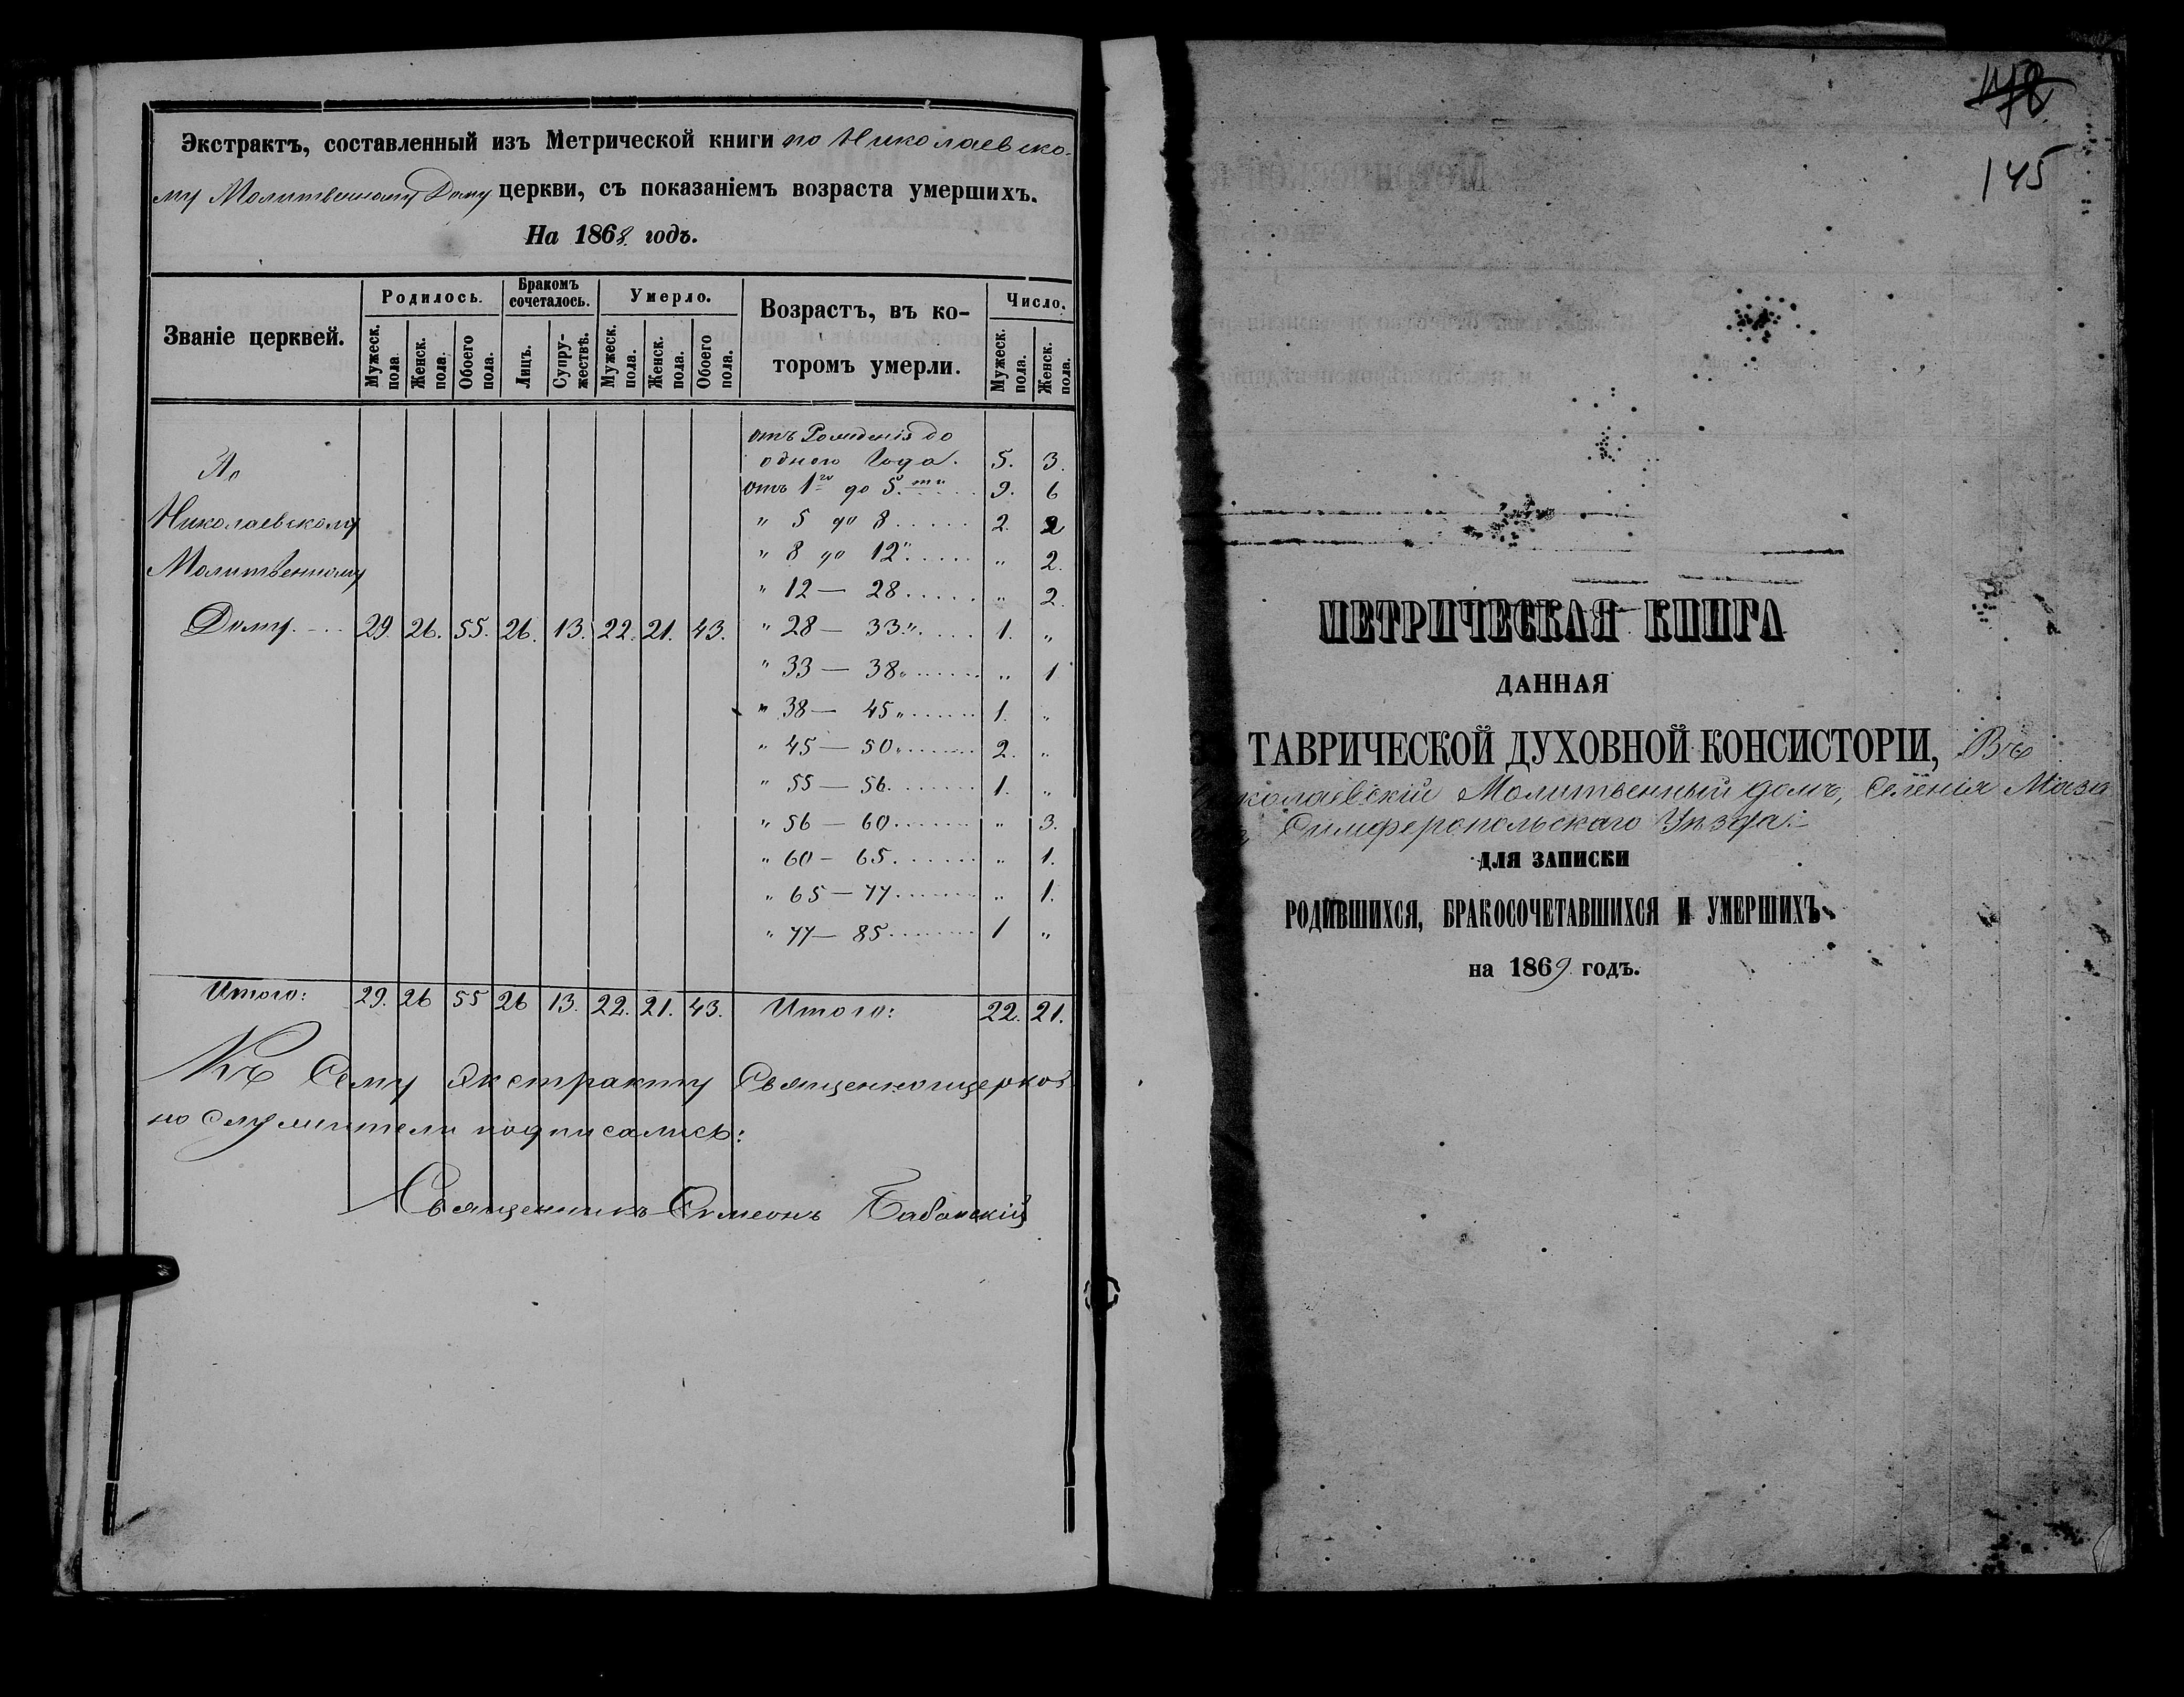 Экстрактъ, составленный изъ Метрической книги по Николаевско-
му Молитвенному Дому церкви, съ показаніемъ возраста умершихъ.
На 1868 годъ.
Званіе церквей. Родилось. Бракомъ сочеталось. Умерло. Возрастъ, въ которомъ умерли. Число.
Мужеск. пола. Женск. пола. Обоего пола. Лицъ. Супружествъ. Мужеск. пола. Женск. пола. Обоего пола. Мужеск. пола. Женск. пола.
отъ Рожденія до
одного Года. 5. 3.
По
отъ 1го до 5.ти 9. 6
Николаевскому
" 5 до 8 2. 2
" 8 до 12 " 2.
Молитвенному
" 12 — 28 " 2.
Дому. 29. 26. 55. 26. 13. 22. 21. 43. " 28 — 33 1. "
" 33 — 38 " 1
" 38 — 45 1. "
" 45 — 50 2. "
" 55 — 56 1. "
" 56 — 60 " 3.
" 60 — 65 " 1.
" 65 — 77 " 1.
" 77 — 85 1 "
Итого: 29. 26 55 26 13. 22. 21. 43. Итого: 22. 21.
Къ Сему Экстракту Священноцерков-
но служители подписались:
Священникъ Симеонъ
145
МЕТРИЧЕСКАЯ КНИГА
ДАННАЯ
ТАВРИЧЕСКОЙ ДУХОВНОЙ КОНСИСТОРІИ, Въ
колаевскій Молитвенный домъ, Селенія Маза
Симферопольскаго Уѣзда.
ДЛЯ ЗАПИСКИ
РОДИВШИХСЯ, БРАКОСОЧЕТАВШИХСЯ И УМЕРШИХЪ
на 1869 годъ.